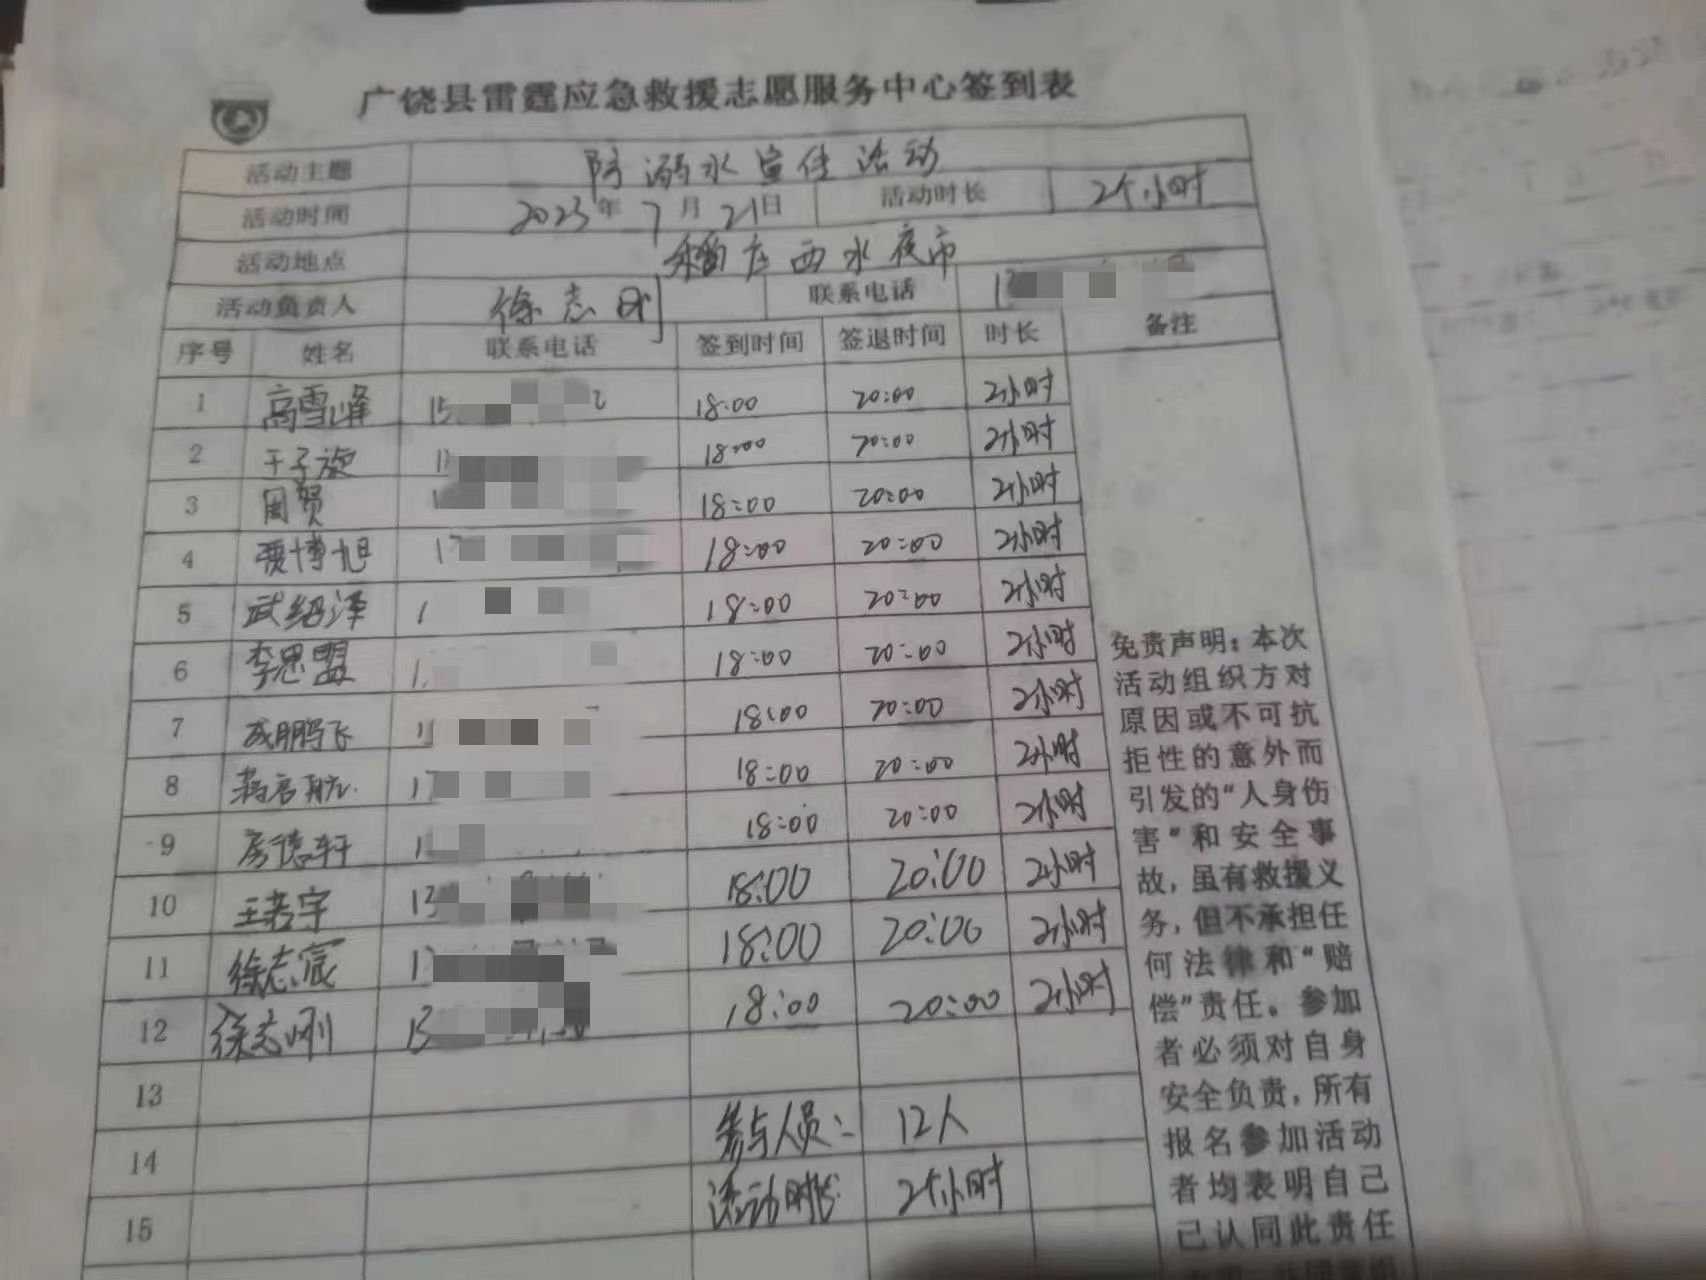 广饶县雷霆应急救援志愿服务中心签到表
活动主题 防溺水宣传活动
活动时间 2023年7月21日 活动时长 2个小时
活动地点 稻庄西水夜市
活动负责人 徐志刚 联系电话 1
序号 姓名 联系电话 签到时间 签退时间 时长 备注
1 高雪峰 15 2 18:00 20:00 2小时
2 王子旋 1 18:00 20:00 2小时
3 周贺 18:00 20:00 2小时
4 贾博旭 1 18:00 20:00 2小时
5 武绍泽 1 18:00 20:00 2小时
6 李思盟 1 18:00 20:00 2小时
7 成鹏飞 1 18:00 20:00 2小时
8 18:00 20:00 2小时
9 房德轩 1 18:00 20:00 2小时
10 王若宇 13 18:00 20:00 2小时
11 徐志宸 1 18:00 20:00 2小时
12 徐志刚 13 18:00 20:00 2小时
13
14 参与人员: 12人
15 活动时长: 2个小时
免责声明:本次
活动组织方对
原因或不可抗
拒性的意外而
引发的“人身伤
害”和安全事
故,虽有救援义
务,但不承担任
何法律和“赔
偿”责任。参加
者必须对自身
安全负责,所有
报名参加活动
者均表明自己
已认同此责任